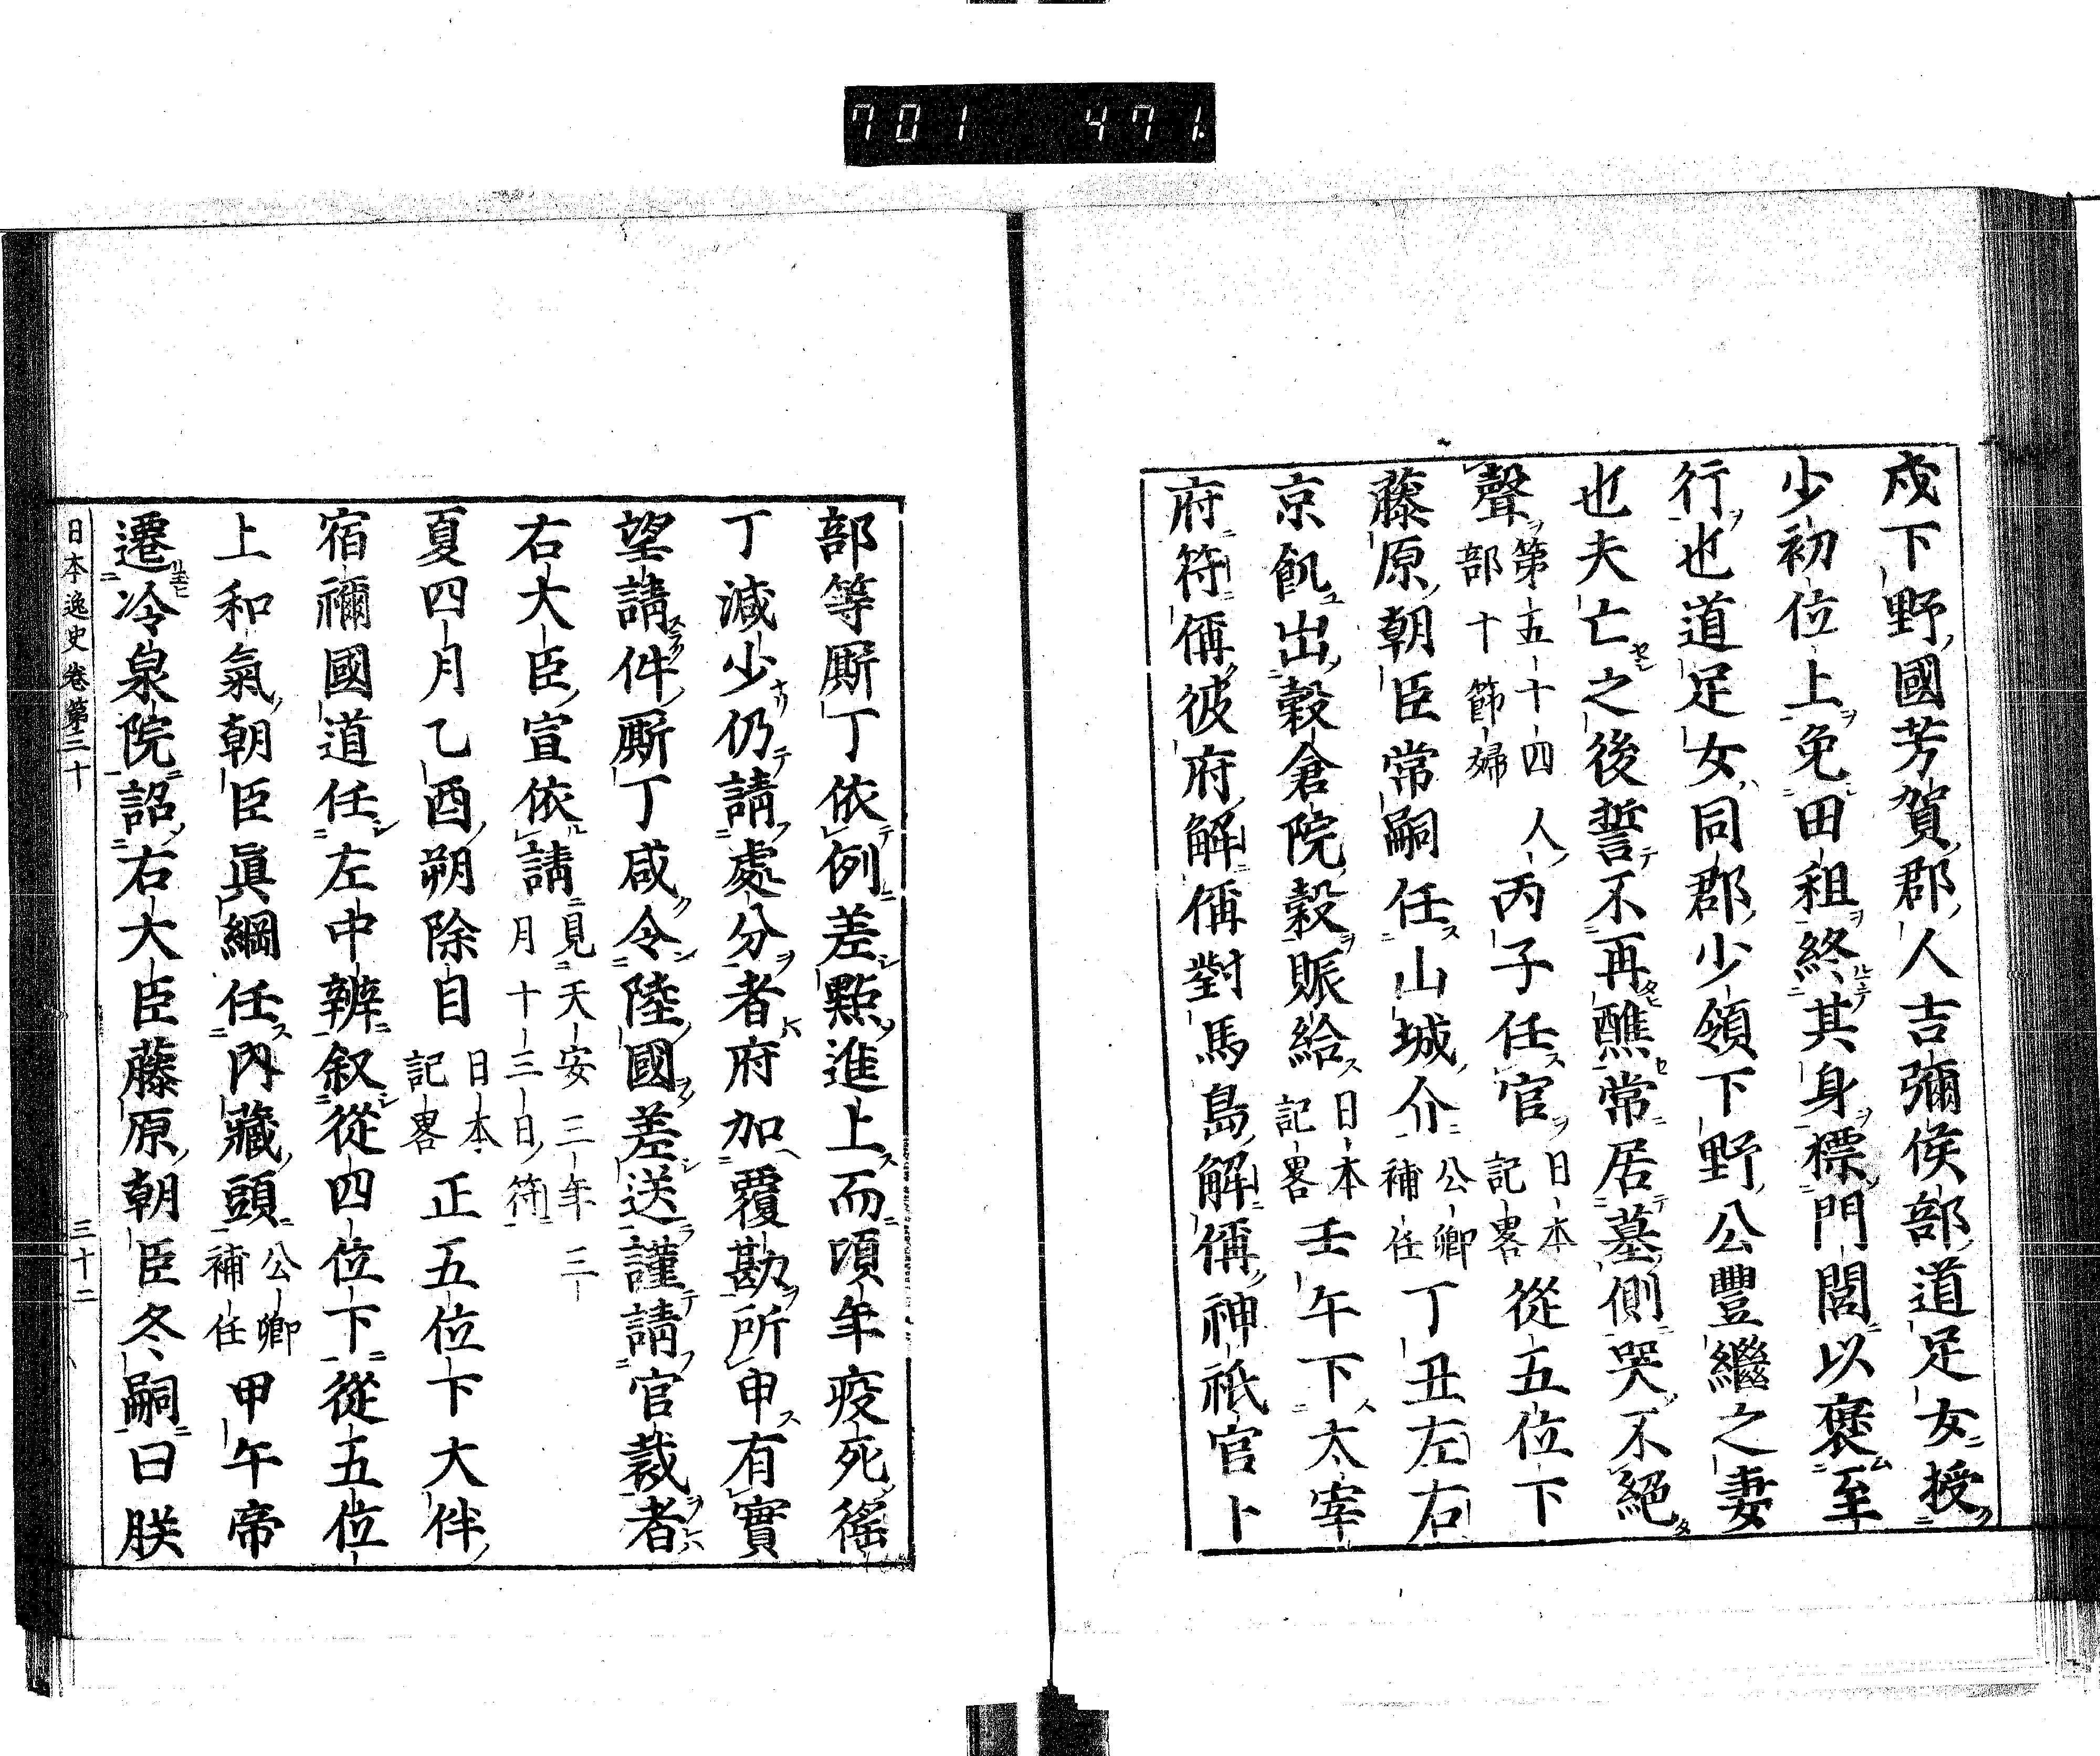 701 471
戍下野國芳賀郡人吉彌侯部道足女授
少初位上免田租終其身標門閭以褒至
行也道足女同郡少領下野公豐繼之妻
也夫亡之後誓不再醮常居墓側哭不絕
聲第五十四人部十節婦丙子任官日本記畧從五位下
藤原朝臣常嗣任山城介公卿補任丁丑左右
京飢出穀倉院穀賑給日本記畧壬午下太宰
府符偁彼府解偁對馬島解偁神祇官卜
部等厮丁依例差點進上而頃年疫死徭
丁減少仍請處分者府加覆勘所申有實
望請件厮丁咸令陸國差送謹請官裁者
右大臣宣依請見天安三年三月十三日符
夏四月乙酉朔除目日本記畧正五位下大伴
宿禰國道任左中辨叙從四位下從五位
上和氣朝臣眞綱任內藏頭公卿補任甲午帝
遷冷泉院詔右大臣藤原朝臣冬嗣曰朕
日本逸史卷第三十 三十二